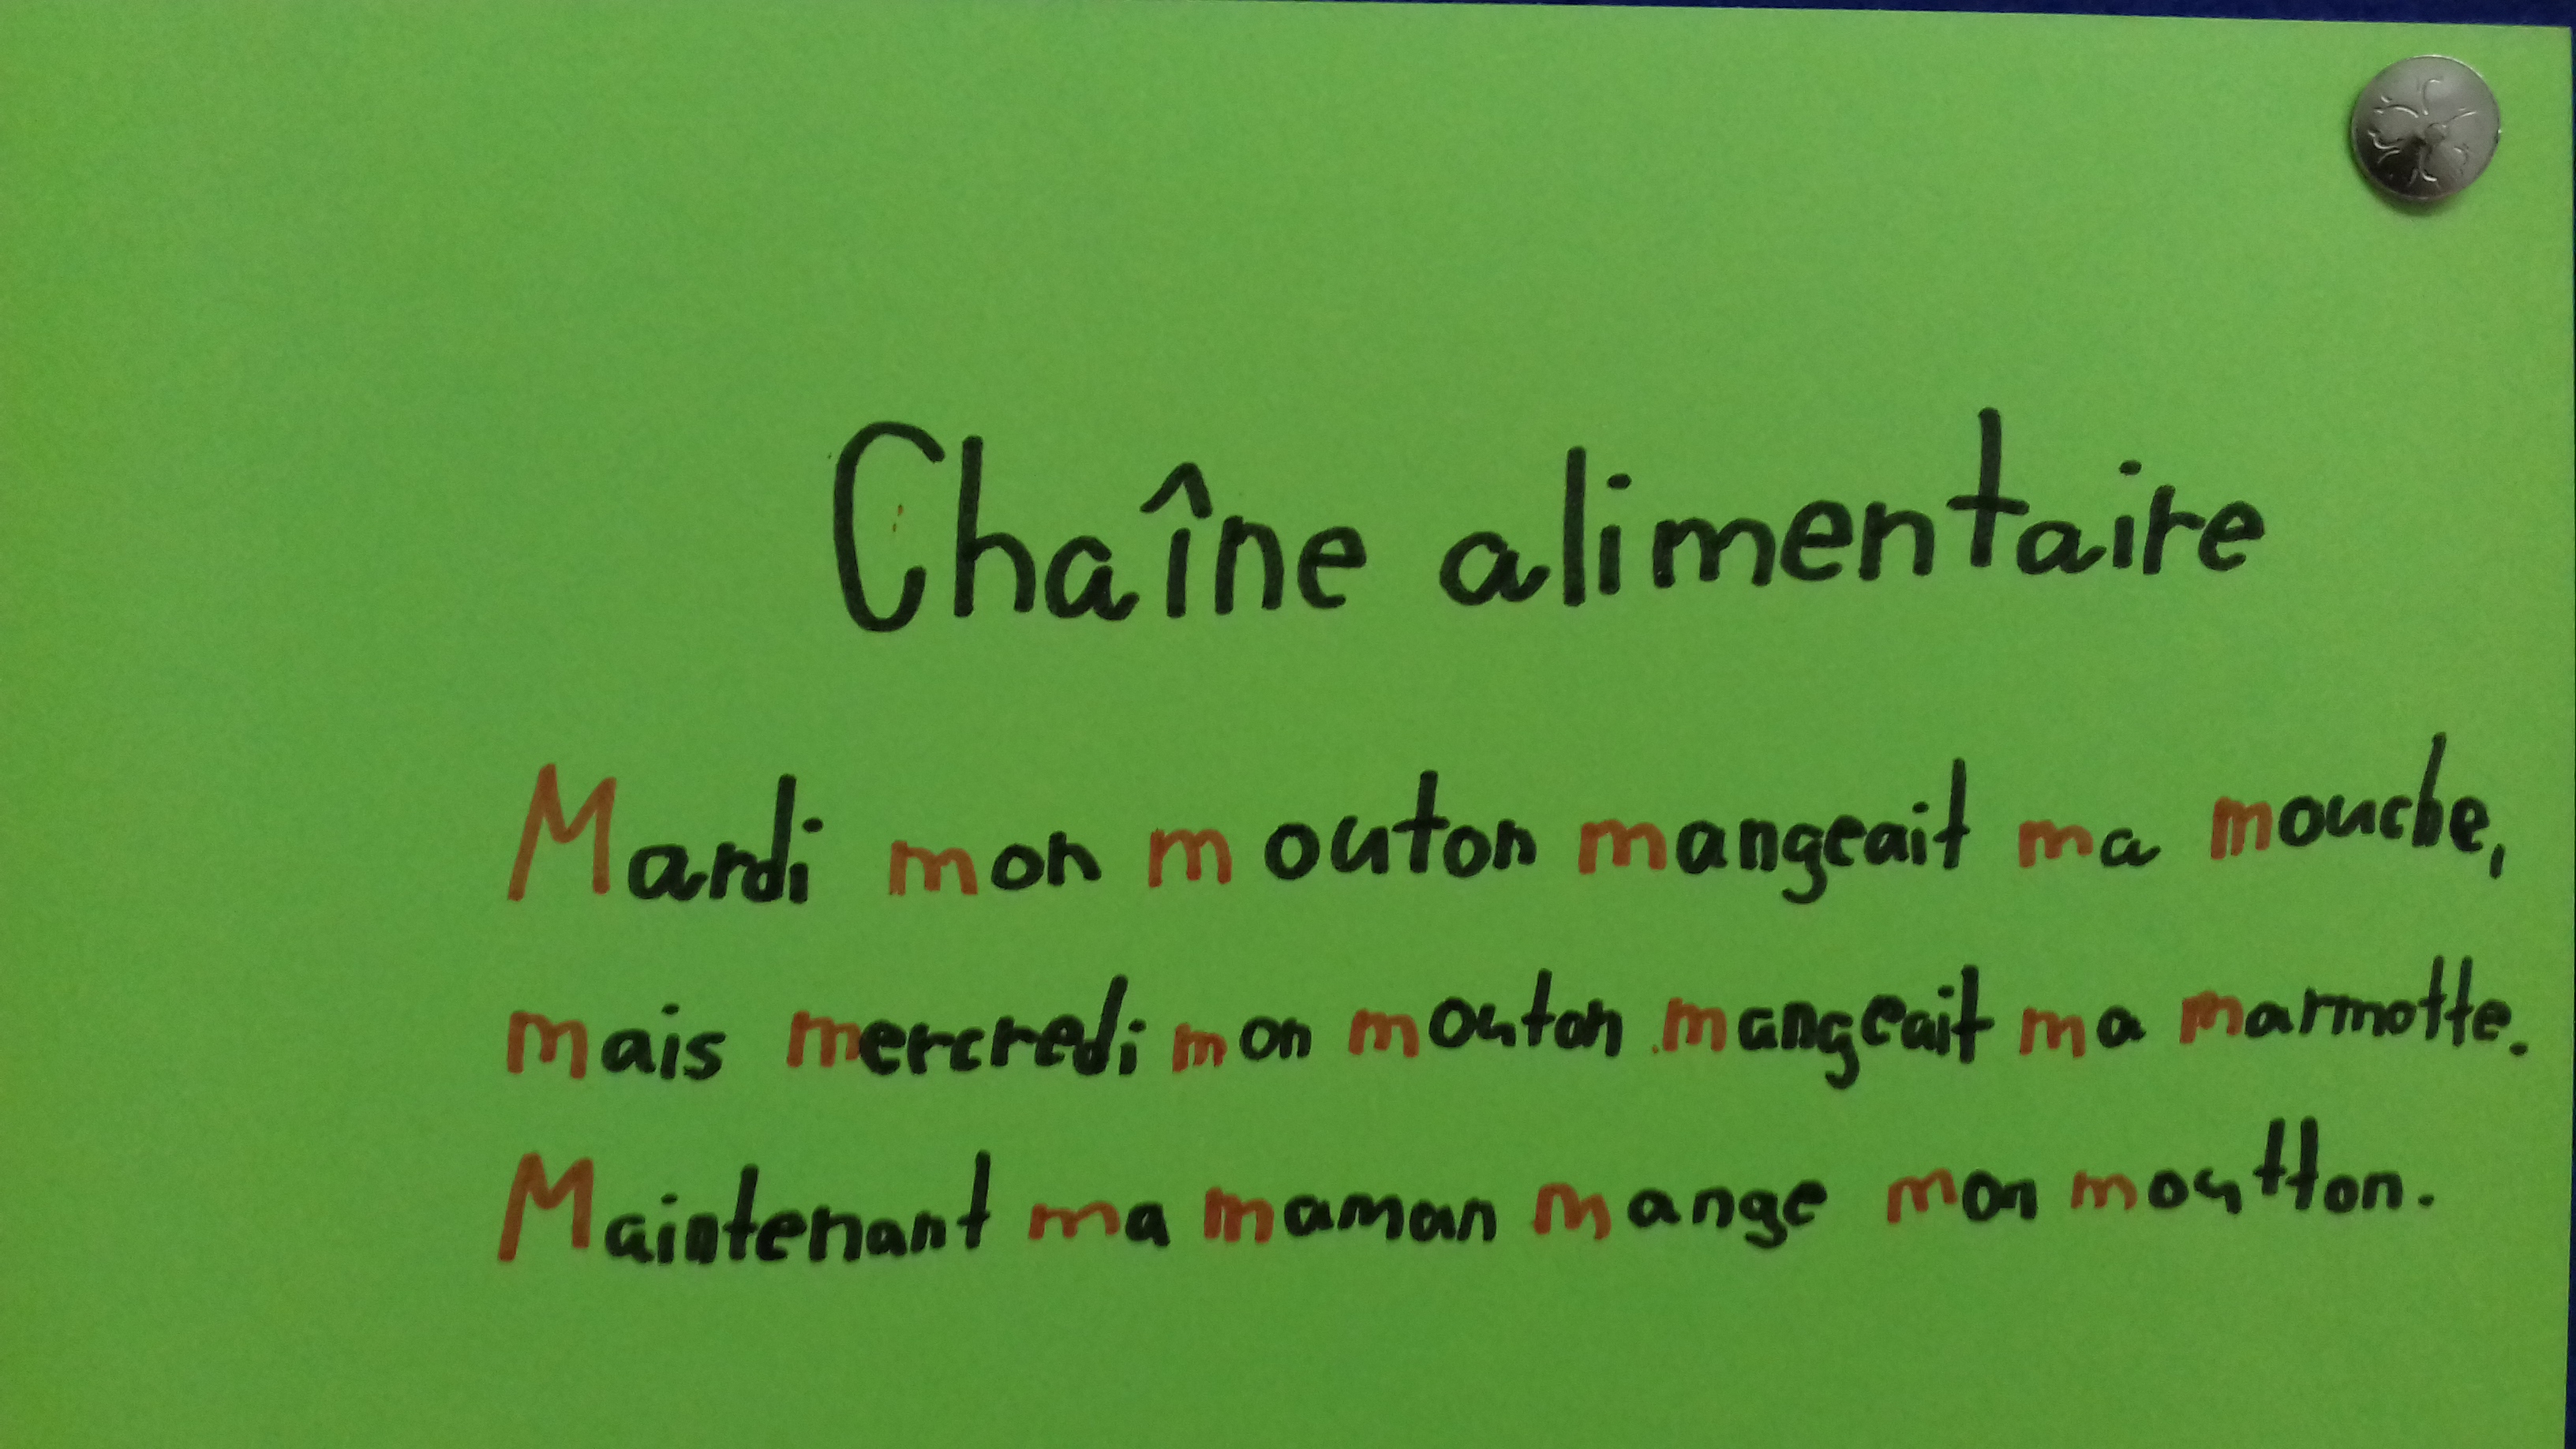 Chaîne alimentaire
Mardi mon mouton mangeait ma mouche,
mais mercredi mon mouton mangeait ma marmotte.
Maintenant ma maman mange mon moutton.